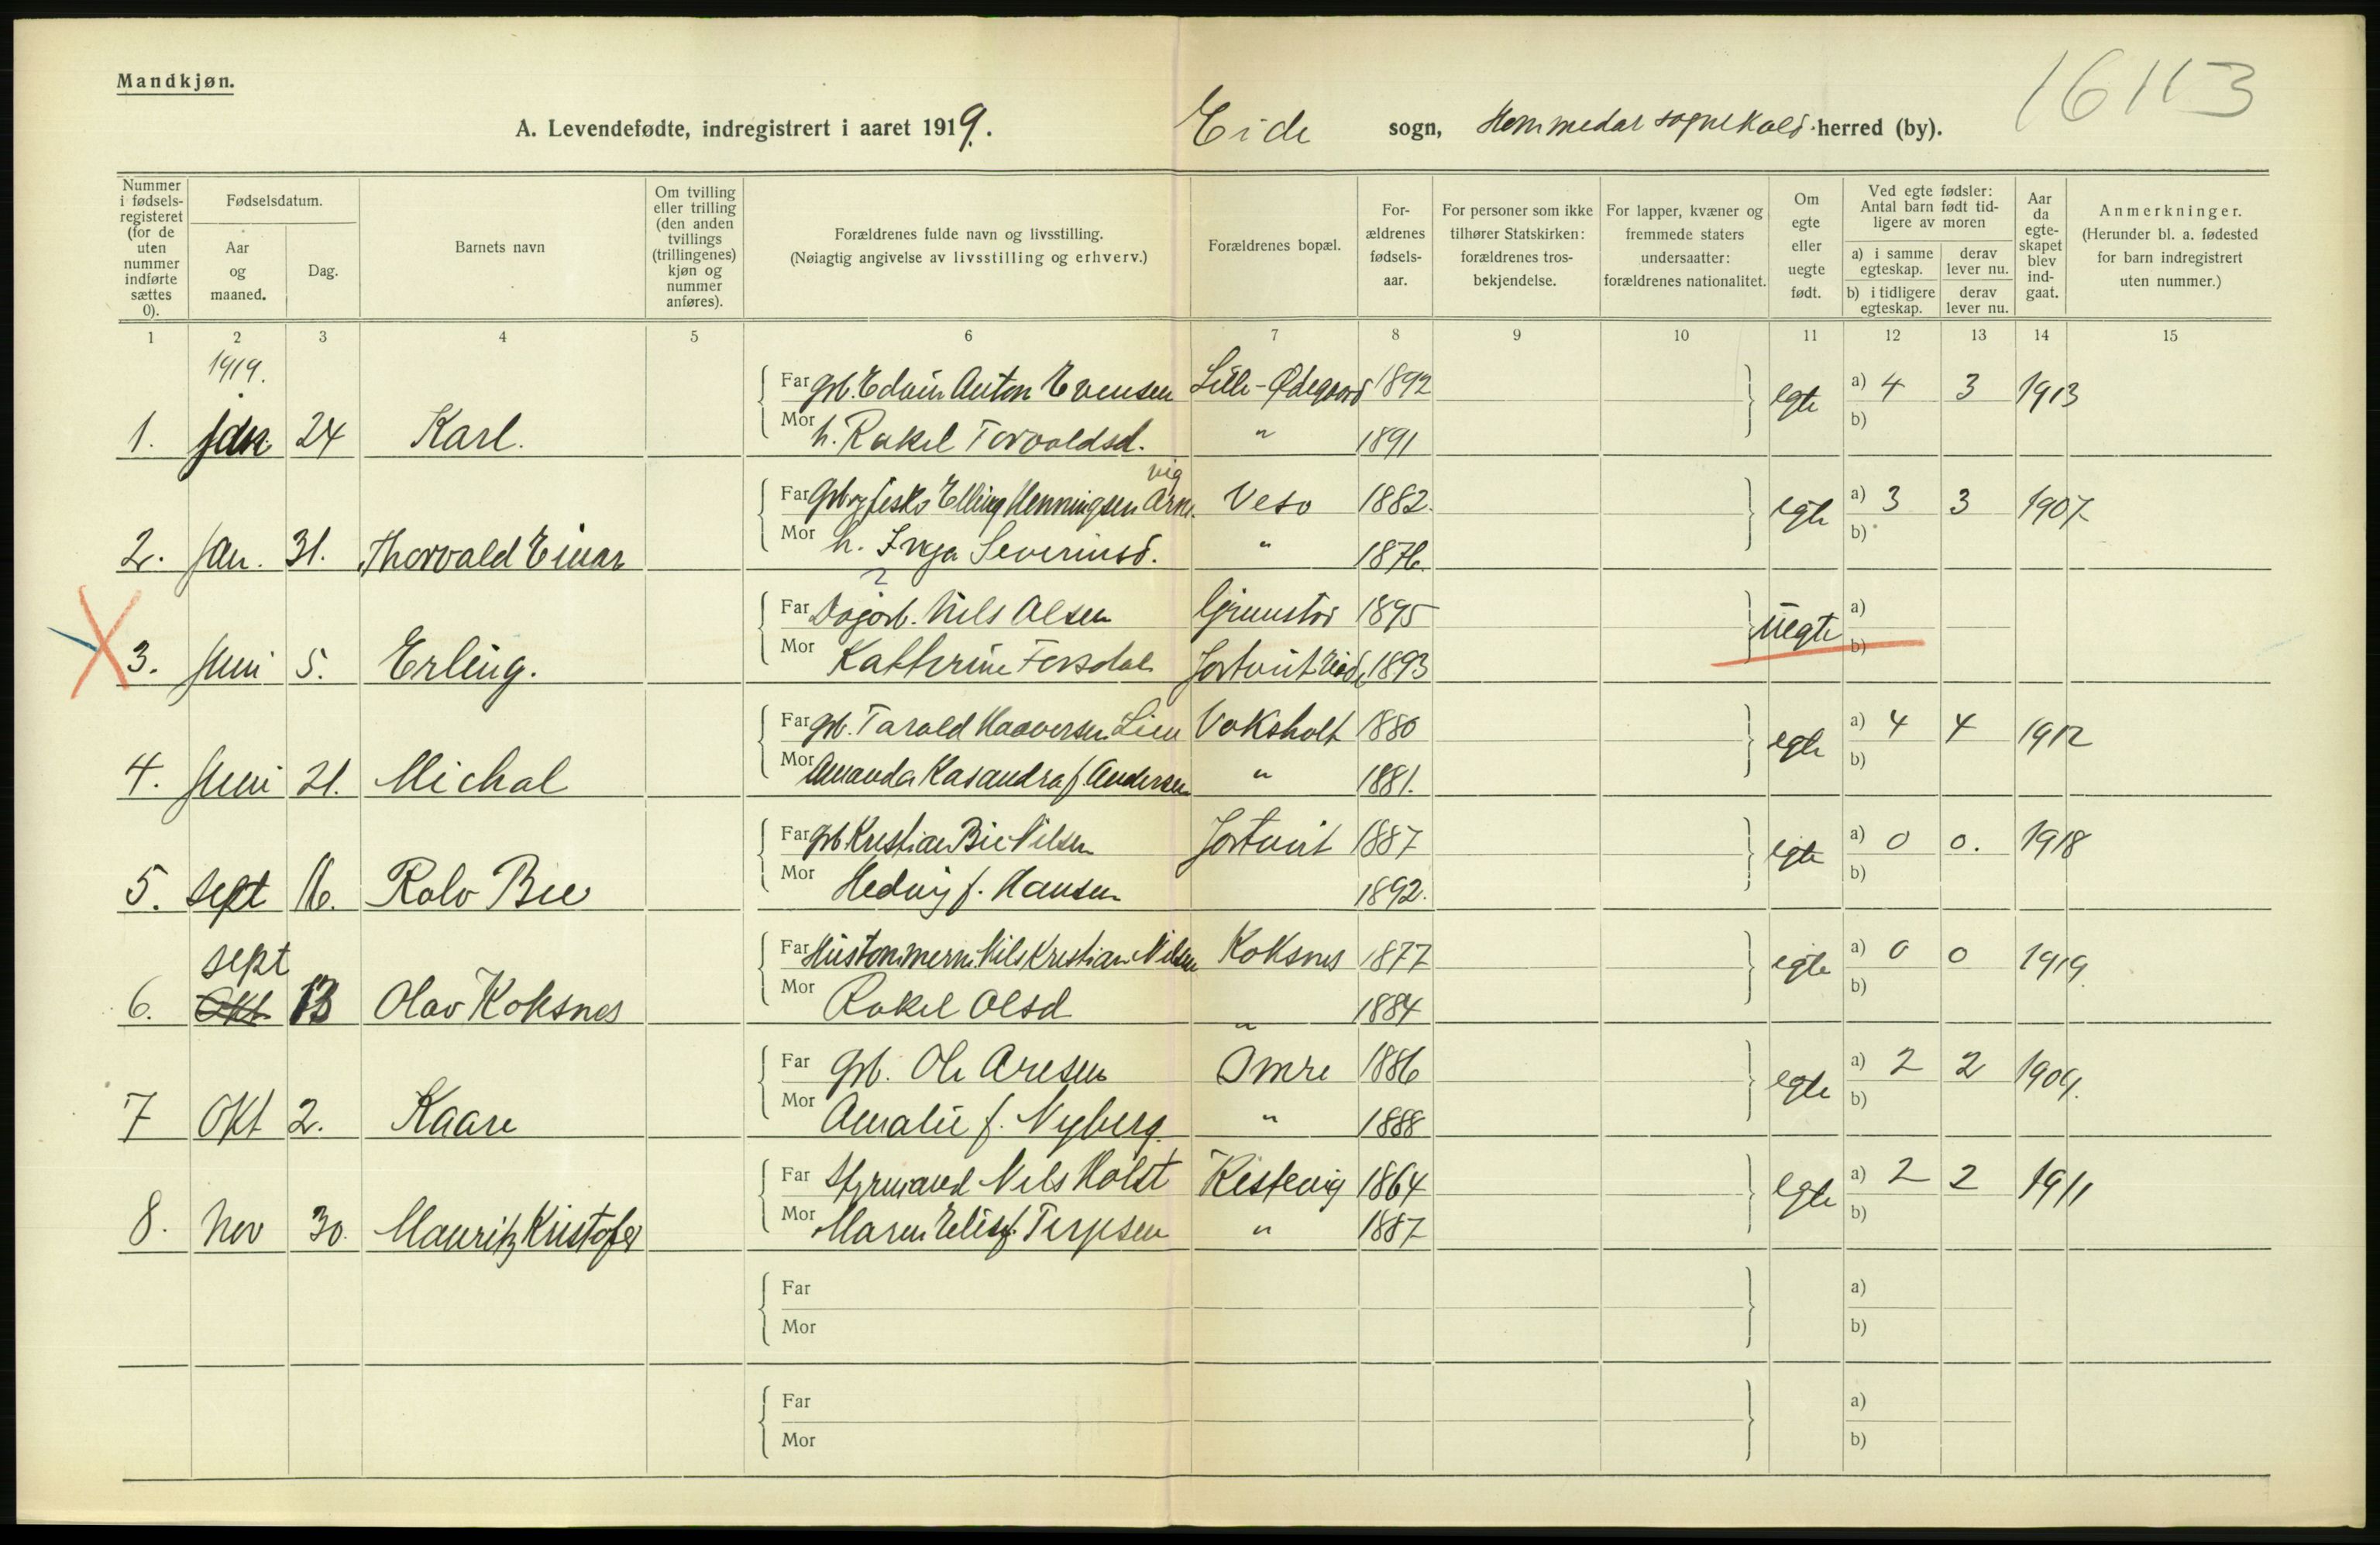 Mandkjøn.
16113
A. Levendefødte, indregistrert i aaret 1919. Eide sogn, Hommedal sognekald herred (by).
Nummer i fødsels-registeret (for de uten nummer indførte sættes 0).
Fødselsdatum.
Aar og maaned.
Dag.
Barnets navn
Om tvilling eller trilling (den anden tvillings (trillingenes) kjøn og nummer anføres).
Forældrenes fulde navn og livsstilling.
(Nøiagtig angivelse av livsstilling og erhverv.)
Forældrenes bopæl.
For-ældrenes fødsels-aar.
For personer som ikke tilhører Statskirken: forældrenes tros-bekjendelse.
For lapper, kvæner og fremmede staters undersaatter: forældrenes nationalitet.
Om egte eller uegte født.
Ved egte fødsler: Antal barn født tid-ligere av moren
a) i samme egteskap. derav lever nu.
b) i tidligere egteskap. derav lever nu.
Aar da egte-skapet blev ind-gaat.
Anmerkninger.
(Herunder bl. a. fødested for barn indregistrert uten nummer.)
1 2 3 4 5 6 7 8 9 10 11 12 13 14 15
1919.
Far Grb. Edvin Anton Evensen Lille-Ødegaard 1892 egte a) 4 3 1913
1. jan 24 Karl. Mor h. Rakel Torvaldsd. " 1891 b)
vig
Far Grb og fisker Elling Henningsen Arne. Veso 1882. egte a) 3 3 1907
2. Jan. 31. Thorvald Einar Mor h. Inga Severinsd. " 1876. b)
Far Dagarb. Nils Olsen Grimstad 1895 uegte a)
3. Juni 5. Erling. Mor Katherine Forsdal Jortveit Eide 1893 b)
Far Grb. Tarald Haaversen Lien Voksholt 1880 egte a) 4 4 1912
4. Juni 21. Michal Mor Amanda Kasandra f. Andersen " 1881. b)
Far Grb Kristian Bie Nilsen Jortveit 1887 egte a) 0 0. 1918
5. sept 16. Rolv Bie Mor Hedvig f. Hansen 1892. b)
sept
Far Hustømmerm. Nils Kristian Nilsen Koksnes 1877 egte a) 0 0 1919
6. Okt 13 Olav Koksnes Mor Rakel Olsd " 1884 b)
Far Grb. Ole Aresen Omre 1886 egte a) 2 2 1909.
7 Okt 2. Kaare Mor Amalie f. Nyberg. " 1888 b)
Far Styrmand Nils Holst Kestevig 1864 egte a) 2 2 1911
8. Nov 30. Mauritz Kristofer Mor Maren Elise f. Terjesen " 1887 b)
Far a)
Mor b)
Far a)
Mor b)